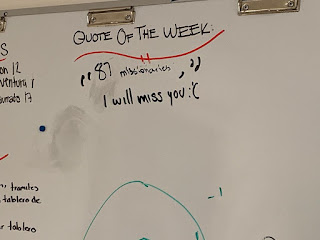 QUOTE OF THE WEEK:
"87 missionaries,"
I will miss you :(
s
on 12
ventura 1
17
tramites
tablero de
er tablero
-1